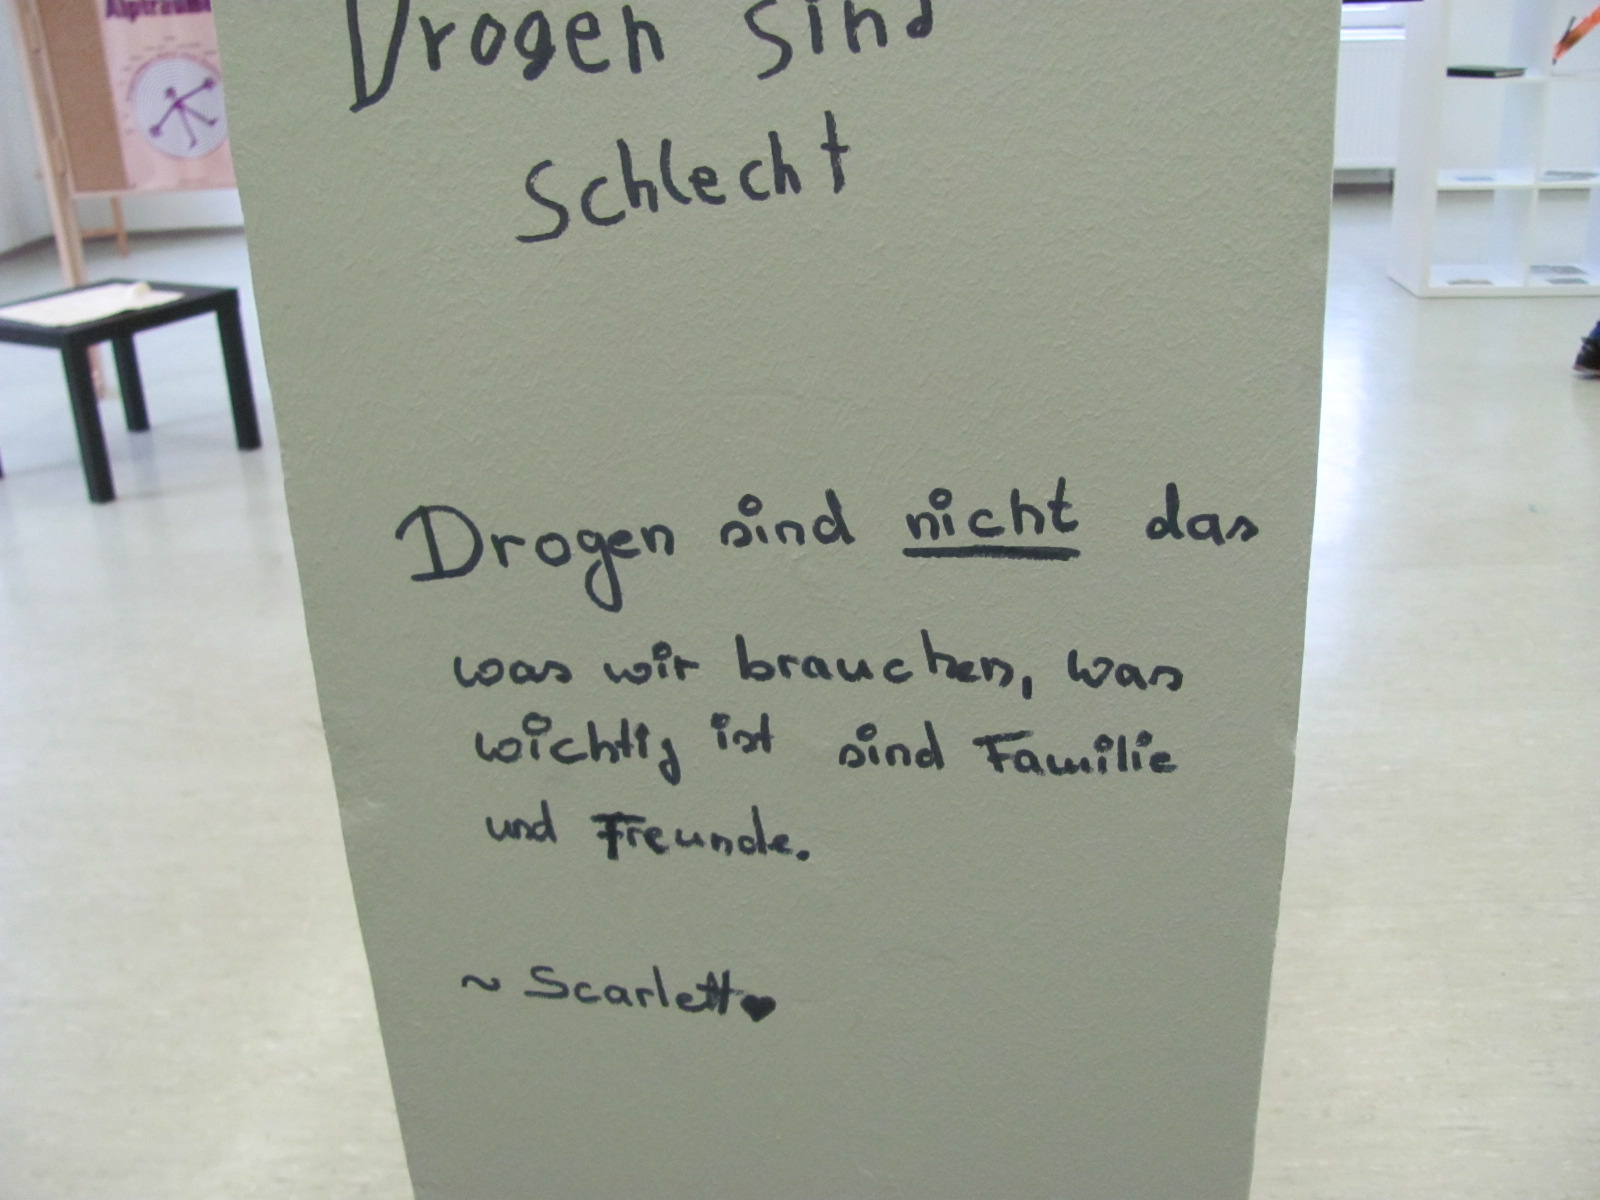 Alpträume
Drogen sind
schlecht
Drogen sind nicht das
was wir brauchen, was
wichtig ist sind Familie
und Freunde.
~ Scarlett♥